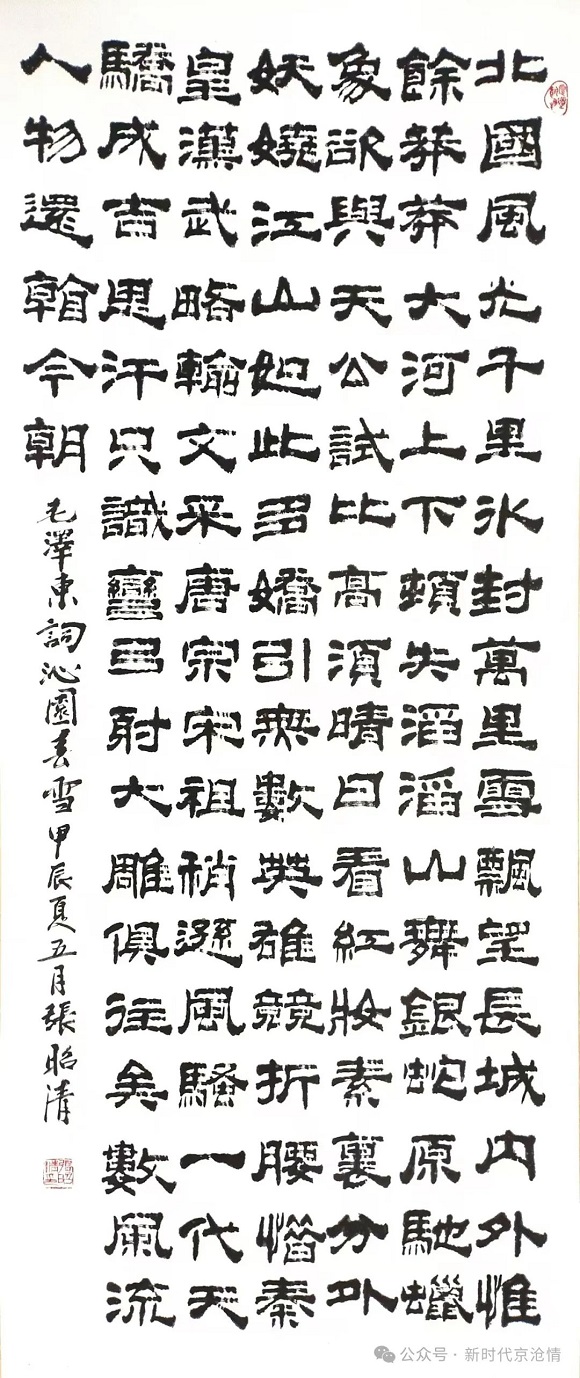 北國風光千里冰封萬里雪飄望長城內外惟
餘莽莽大河上下頓失滔滔山舞銀蛇原馳蠟
象欲與天公試比高須晴日看紅妝素裹分外
妖嬈江山如此多嬌引無數英雄競折腰惜秦
皇漢武略輸文采唐宗宋祖稍遜風騷一代天
驕成吉思汗只識彎弓射大雕俱往矣數風流
人物還看今朝
毛澤東詞沁園春雪甲辰夏五月張昭清
公众号·新时代京沧情